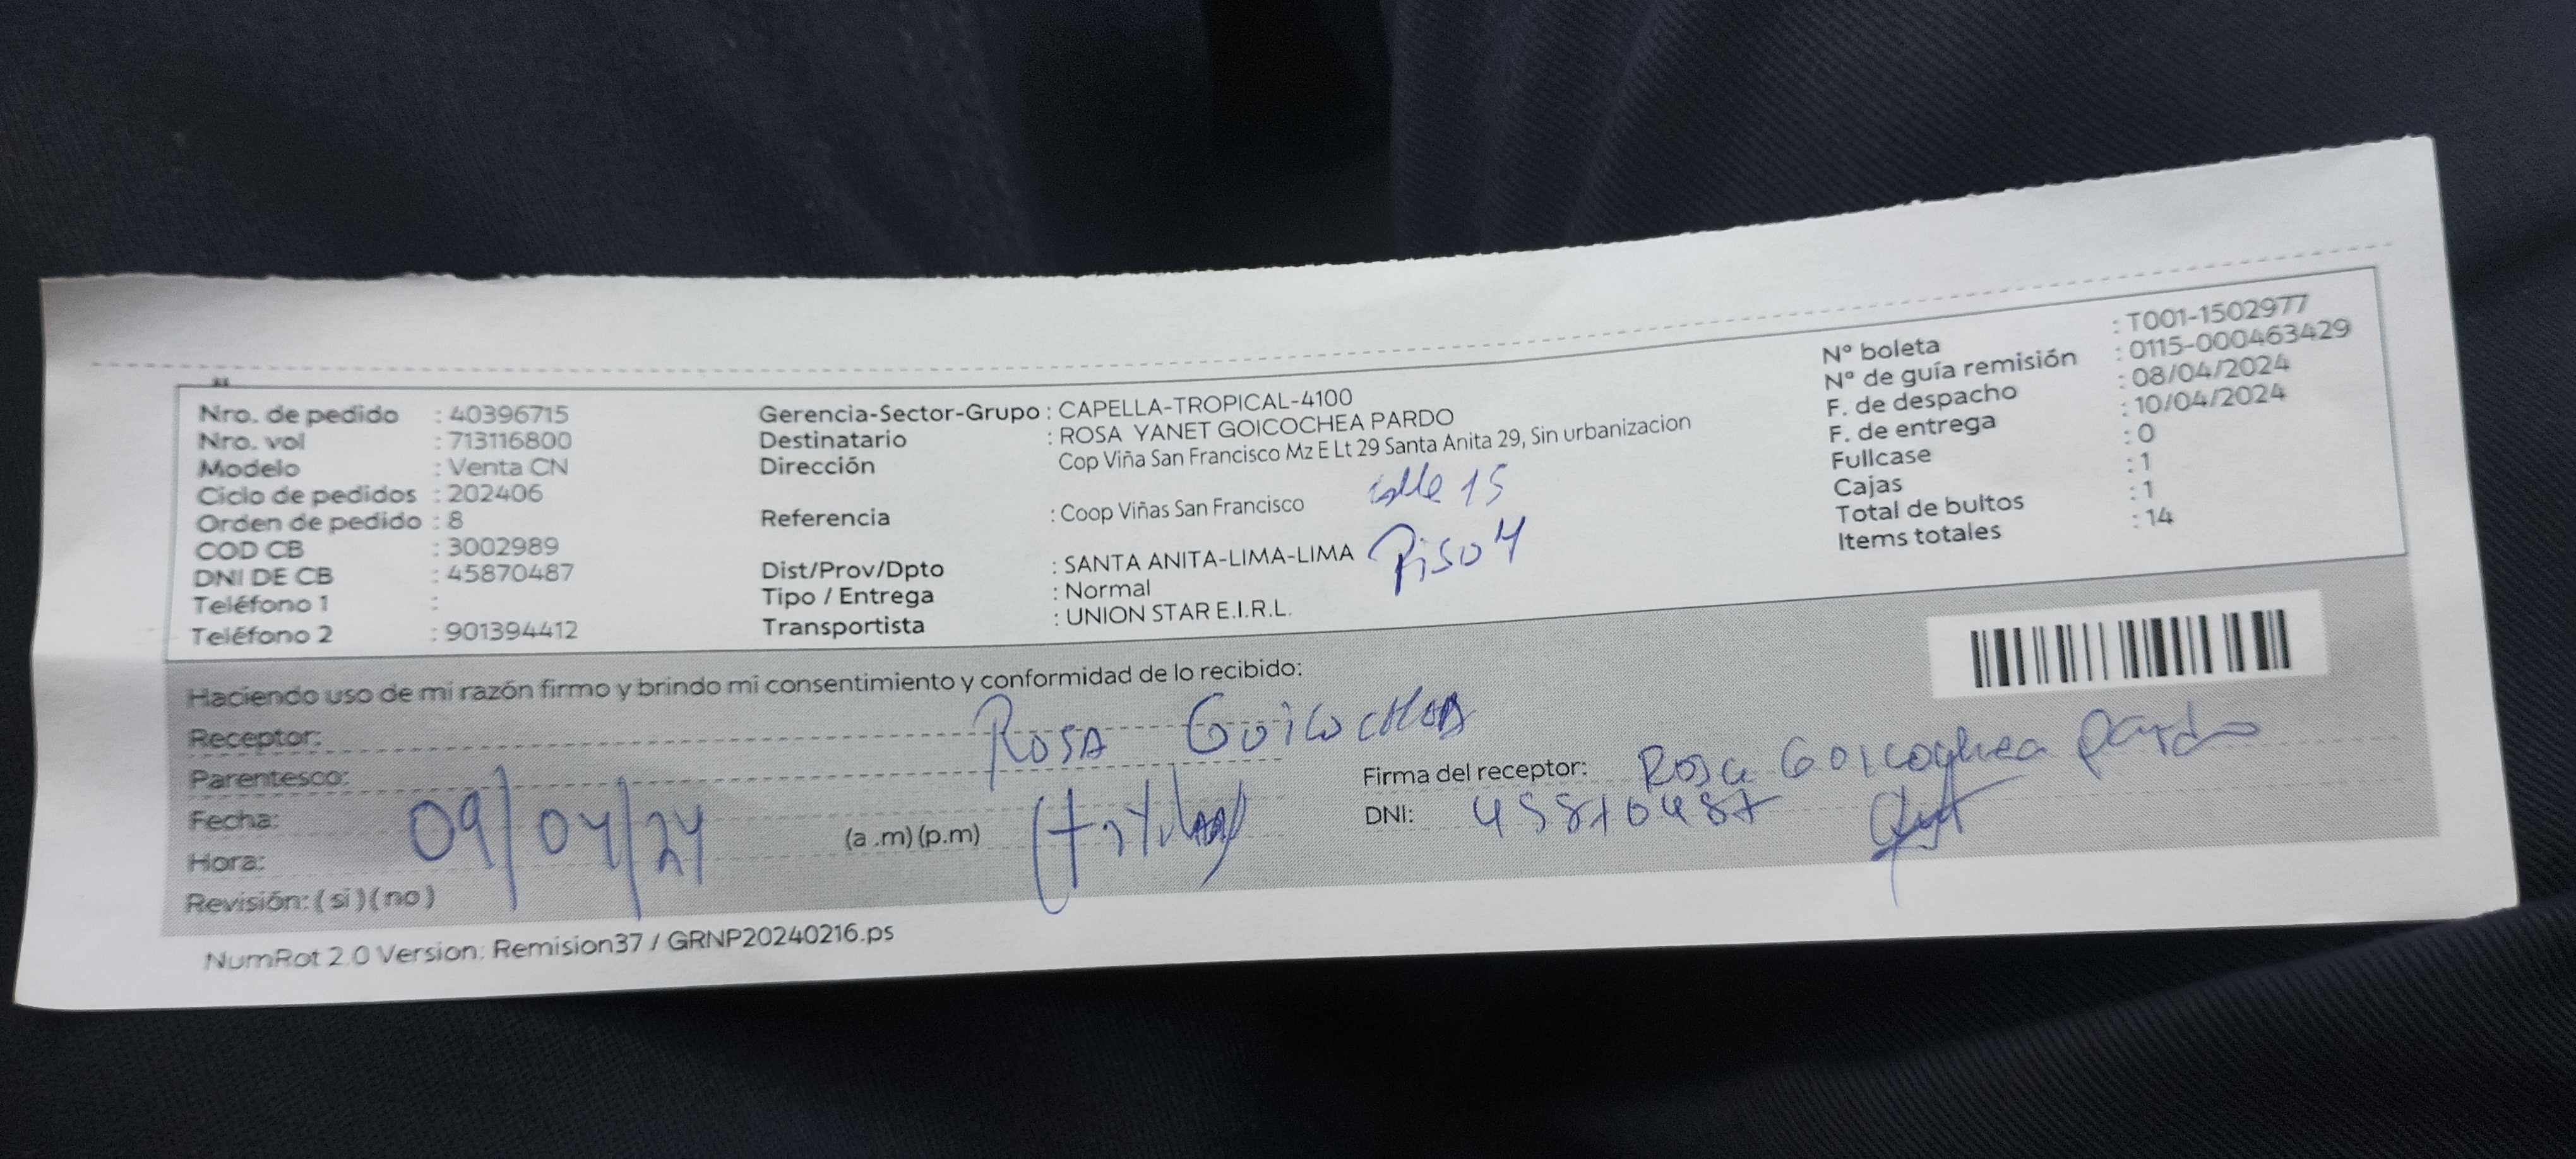 Nro. de pedido : 40396715
Nro. vol : 713116800
Modelo : Venta CN
Ciclo de pedidos : 202406
Orden de pedido : 8
COD CB : 3002989
DNI DE CB : 45870487
Teléfono 1 :
Teléfono 2 : 901394412
Gerencia-Sector-Grupo : CAPELLA-TROPICAL-4100
Destinatario : ROSA YANET GOICOCHEA PARDO
Dirección Cop Viña San Francisco Mz E Lt 29 Santa Anita 29, Sin urbanizacion
calle 15
Referencia : Coop Viñas San Francisco
Piso 4
Dist/Prov/Dpto : SANTA ANITA-LIMA-LIMA
Tipo / Entrega : Normal
Transportista : UNION STAR E.I.R.L.
N° boleta : T001-1502977
N° de guía remisión : 0115-000463429
F. de despacho : 08/04/2024
F. de entrega : 10/04/2024
Fullcase : 0
Cajas : 1
Total de bultos : 1
Items totales : 14
Haciendo uso de mi razón firmo y brindo mi consentimiento y conformidad de lo recibido:
Receptor: Rosa Goicochea
Parentesco:
Fecha: 09/04/24
Hora: (a .m) (p.m)
Revisión: ( si ) ( no )
Firma del receptor: Rosa Goicochea Pardo
DNI: 45870487
NumRot 2.0 Version: Remision37 / GRNP20240216.ps